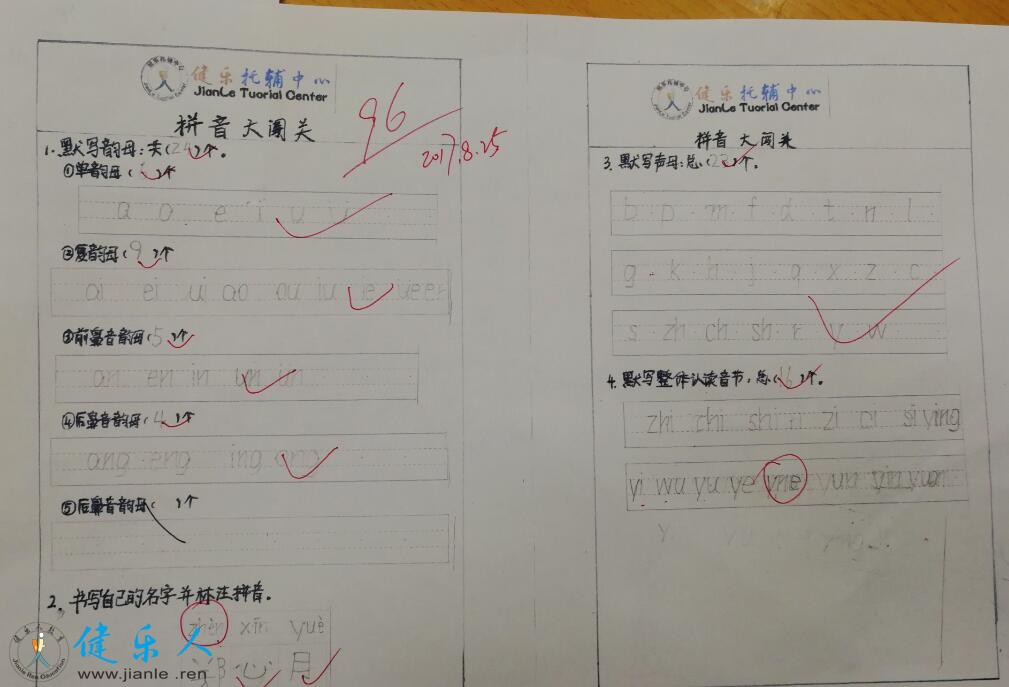 健乐托辅中心
JianLe Tuorial Center
拼音大闯关
96
2017.8.25
1.默写韵母:共(24)个。
①单韵母( )个
a o e i u ü
②复韵母(9)个
ai ei ui ao ou iu ie üe er
③前鼻音韵母(5)个
an en in un ün
④后鼻音韵母(4)个
ang eng ing ong
⑤后鼻音韵母( )个
2.书写自己的名字并标注拼音。
zhèn xīn yuè
心 月
健乐托辅中心
JianLe Tuorial Center
拼音大闯关
3.默写声母:总(23)个。
b p m f d t n l
g k h j q x z c
s zh ch sh r y w
4.默写整体认读音节,总(16)个。
zhi chi shi ri zi ci si ying
yi wu yu ye yue yun yin yuan
健乐人
www.jianle.ren